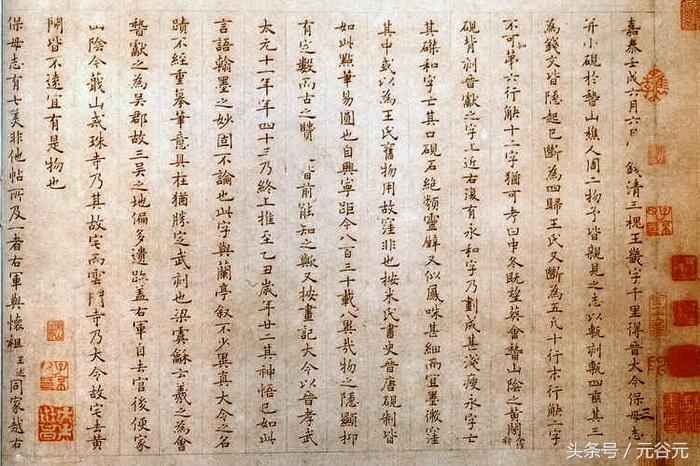 嘉泰壬戌六月六日 錢清三槐王畿字千里得晉大令保母志
并小硯於稽山樵人周二物予皆親見之志以甎刻甎四垂其三
為錢文皆隱起已斷為四歸王氏又斷為五凡十行末行缺二字
不可知第六行缺十二字猶可考曰中冬既望葬會稽山陰之黃閍
硯背刻晉獻之字上近右復有永和字乃劃成甚淺瘦永字亡
其磔和字亡其口硯石絕類靈璧又似鳳咮甚細而宜墨微窪
其中或以為王氏舊物用故窪非也按米氏畫史晉唐硯制皆
如此點筆易圓也自興寧距今八百三十載八異哉物之隱顯抑
有定數而古之賢 日前能知之歟又按畫記大令以晉孝武
太元十一年年四十三乃終上推至乙丑歲年廿二其神悟已如此
言語翰墨之妙固不論也此字與蘭亭叙不少異真大令之名
蹟不經重摹筆意具在猶勝定武刻也梁虞龢云羲之為會
稽獻之為吳郡故三吳之地偏多遺跡蓋右軍自去官後便家
山陰今蕺山戒珠寺乃其故宅而雲門寺乃大令故宅去黃
閍皆不遠宜有是物也
保母志有七美非他帖所及一者右軍與懷祖王述同家越右
头条号 / 元谷元